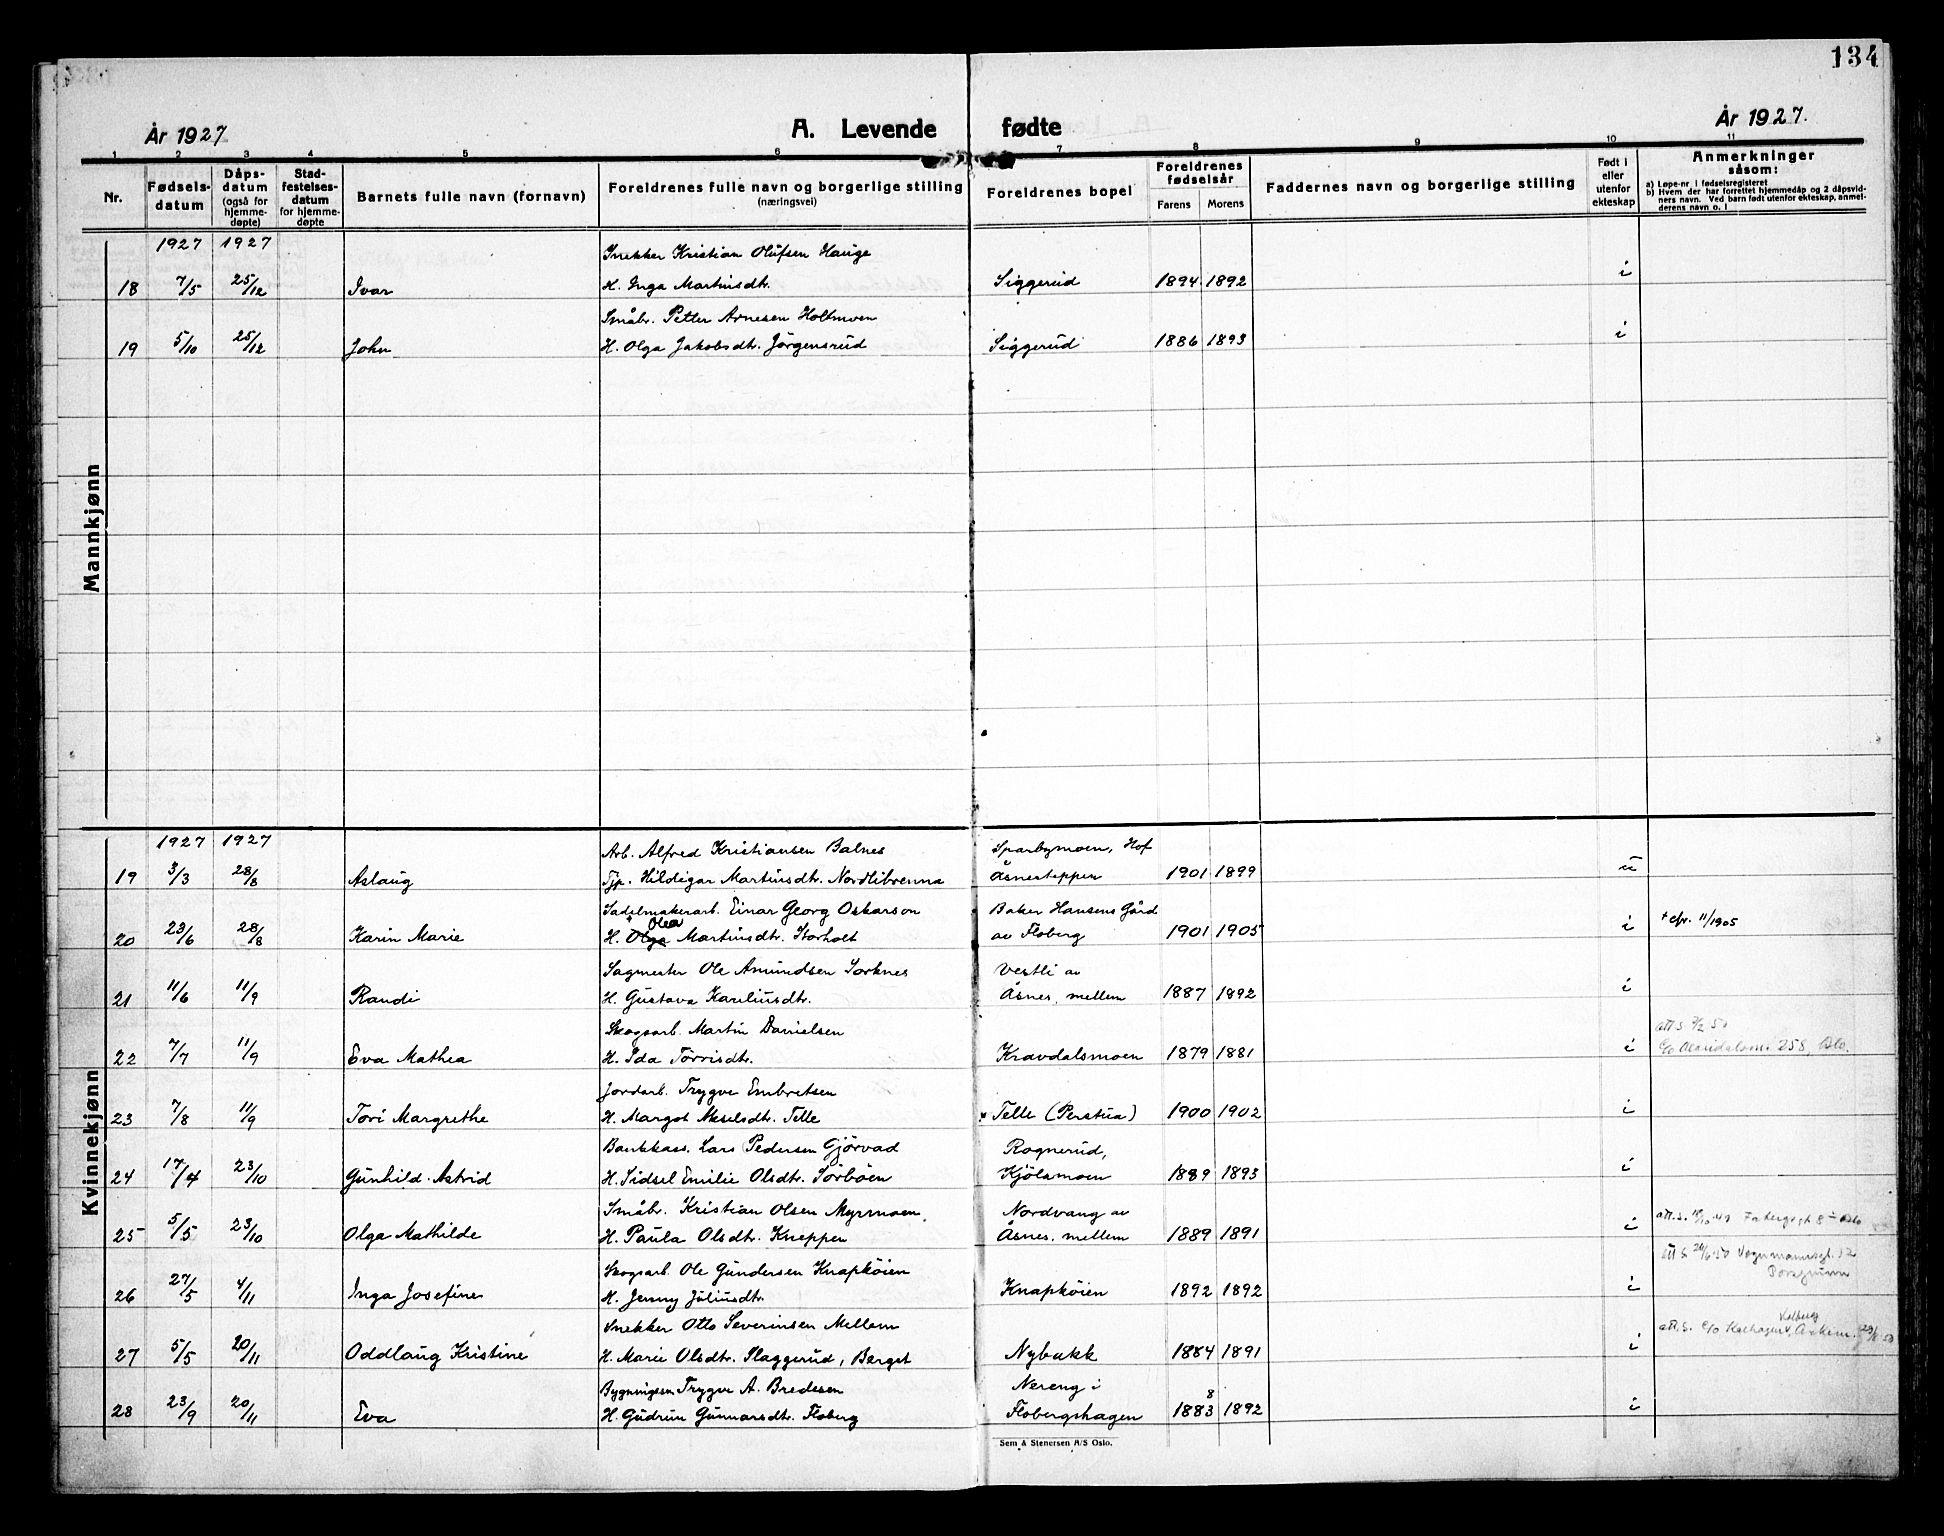 134
År 1927
A. Levende fødte
År 1927.
1 2 3 4 5 6 7 8 9 10 11
Nr.
Fødselsdatum
Dåpsdatum (også for hjemmedøpte)
Stadfestelsesdatum for hjemmedøpte
Barnets fulle navn (fornavn)
Foreldrenes fulle navn og borgerlige stilling (næringsvei)
Foreldrenes bopel
Foreldrenes fødselsår
Farens Morens
Faddernes navn og borgerlige stilling
Født i eller utenfor ekteskap
Anmerkninger såsom:
a) Løpe-nr. i fødselsregisteret
b) Hvem der har forrettet hjemmedåp og 2 dåpsvidners navn. Ved barn født utenfor ekteskap, anmelderens navn o. l
Mannkjønn
1927 1927
Snekker Kristian Olufsen Hauge
18 7/5 25/12 Ivar H. Inga Martinsdtr. Siggerud 1894 1892 i
Småbr. Petter Arnesen Holtmoen
19 5/10 25/12 John H. Olga Jakobsdtr. Jörgensrud Siggerud 1886 1893 i
Kvinnekjønn
1927 1927
Arb. Alfred Kristiansen Balnes Sparbymoen, Hof
19 3/3 28/8 Aslaug Tjp. Hildigar Martinsdtr. Nordlibrenna Åsnesteppen 1901 1899 u
Sadelmakerarb. Einar Georg Oskarson Baker Hansens Gård
Olea
20 23/6 28/8 Karin Marie H. Olga Martinsdtr. Storholt av Floberg 1901 1905 i + cfr. 11/1905
Sagmester Ole Amundsen Sorknes Vestli av
21 11/6 11/9 Randi H. Gustava Kareliusdtr. Åsnes, mellem 1887 1892 i
Skogsarb. Martin Danielsen att. s. 7/2 50
22 7/7 11/9 Eva Mathea H. Ida Torrisdtr. Kravdalsmoen 1879 1881 i 258, Oslo.
Jordarb. Trygve Embretsen
23 7/8 11/9 Tori Margrethe H. Margot Akselsdtr. Telle Telle (Perstua) 1900 1902 i
Bankkass. Lars Pedersen Gjörvad Rognerud,
24 17/4 23/10 Gunhild Astrid H. Sidsel Emilie Olsdtr. Sörböen Kjölamoen 1889 1893 i
Småbr. Kristian Olsen Myrmoen Nordvang av
25 5/5 23/10 Olga Mathilde H. Paula Olsdtr. Kneppen Åsnes, mellem 1889 1891 i att. s. Oslo
Skogsarb. Ole Gundersen Knapköien att s. 24/6 50 Vognmannsgt. 12
26 27/5 4/11 Inga Josefine H. Jenny Juliusdtr. Knapköien 1892 1892 i Porsgrunn
Snekker Otto Severinsen Mellem
27 5/5 20/11 Oddlaug Kristine H. Marie Olsdtr. Slaggerud, Berget Nybakk 1884 1891 i att. s. c/o Askim
Bygningsm Trygve A. Bredesen Nereng i
8
28 23/9 20/11 Eva H. Gudrun Gunnarsdtr. Floberg Flobergshagen 1883 1892 i
Sem & Stenersen A/S Oslo.